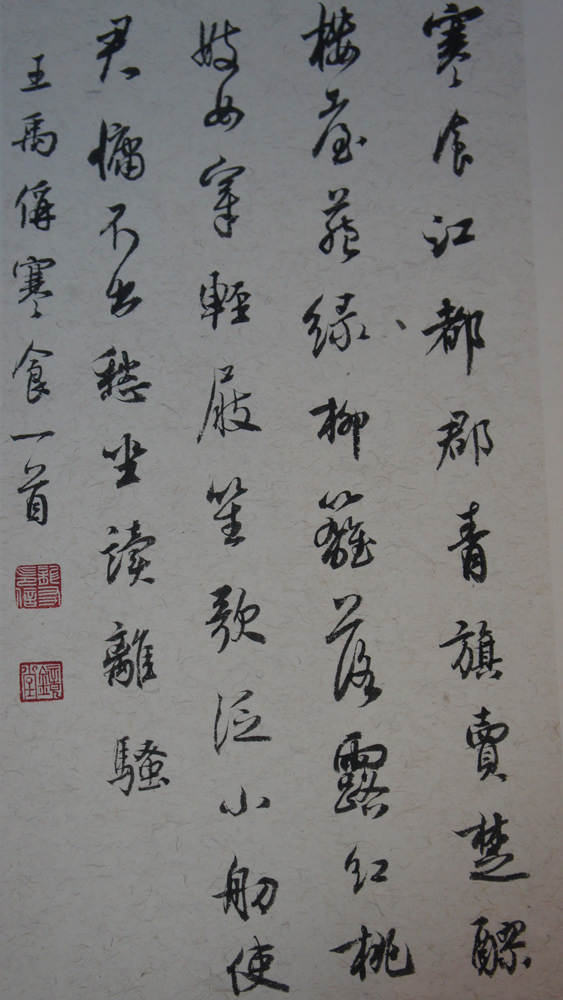 寒食江都郡青旗賣楚醪
樓臺藏綠柳籬落露紅桃
妓女穿輕屐笙歌泛小舠使
君慵不出愁坐讀離騷
王禹偁寒食一首